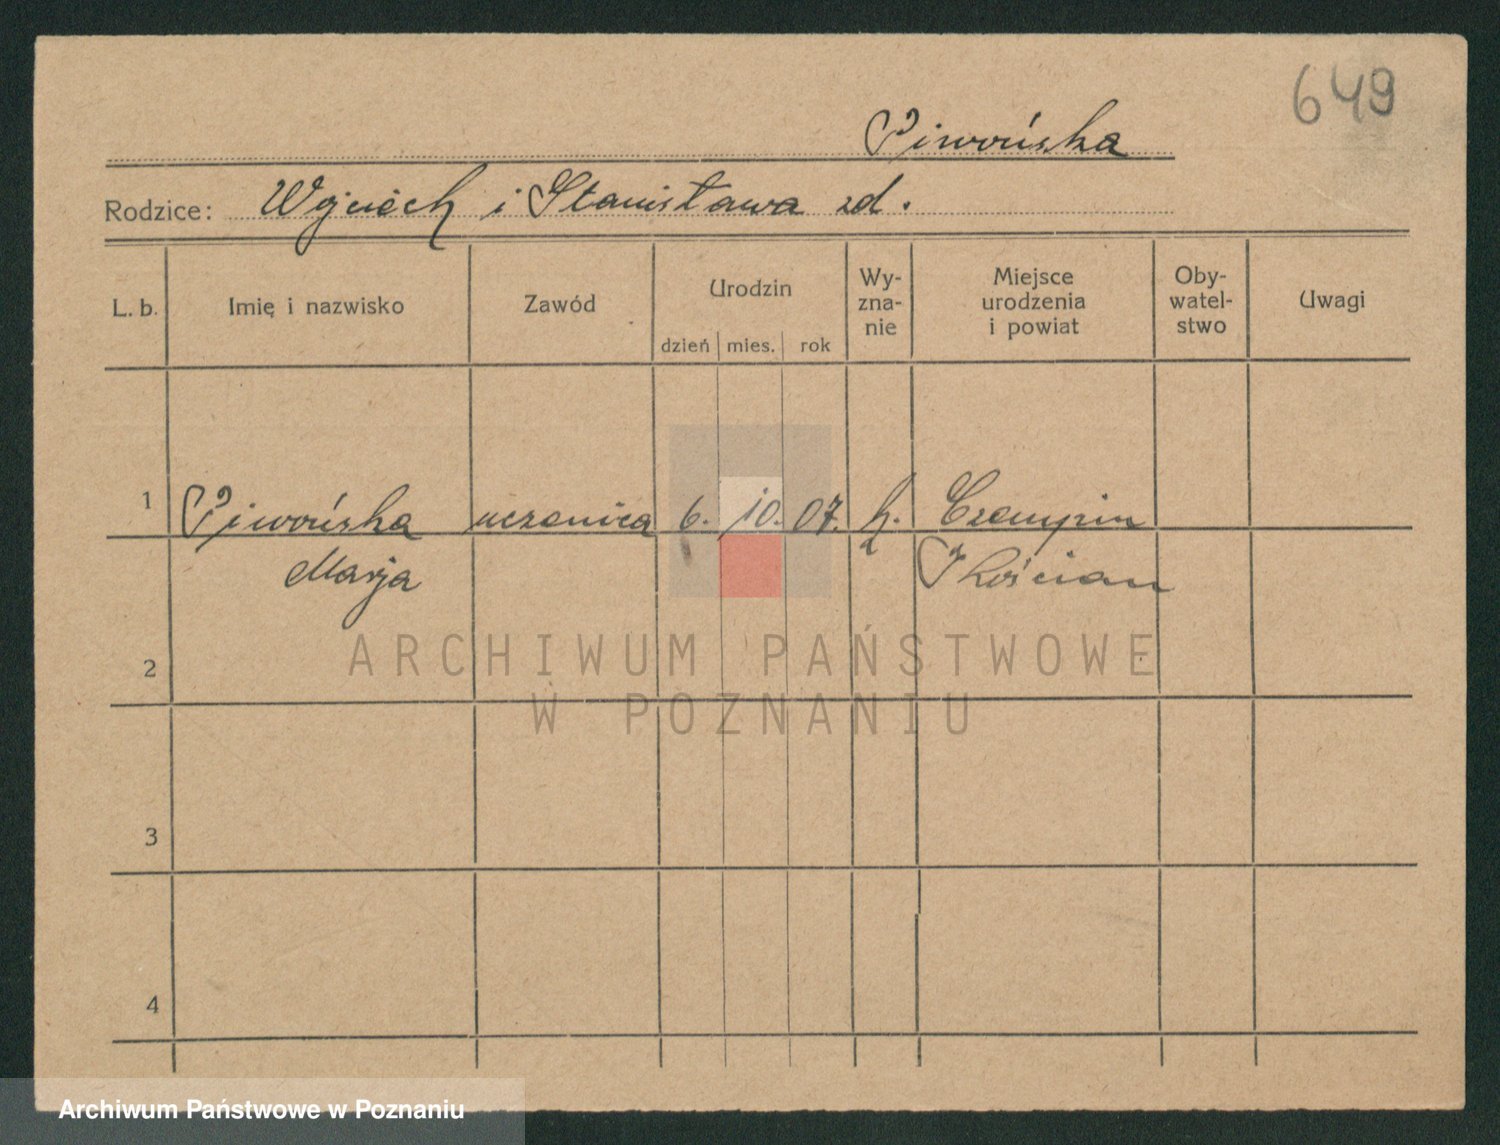 649
Piwońska
Rodzice: Wojciech i Stanisława zd.
L. b.
Imię i nazwisko
Zawód
Urodzin
dzień mies. rok
Wy-
zna-
nie
Miejsce
urodzenia
i powiat
Oby-
watel-
stwo
Uwagi
1 Piwońska uczenica 6. 10. 07. k. Czempin
Marja Kościan
2
3
4
ARCHIWUM PAŃSTWOWE
W POZNANIU
Archiwum Państwowe w Poznaniu